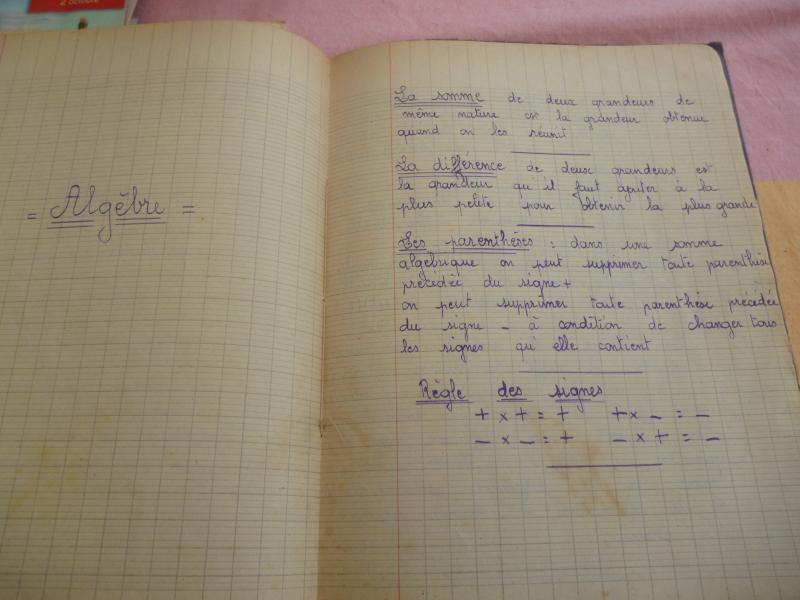 2 Octobre
= Algèbre =
La somme de deux grandeurs de
même nature est la grandeur obtenue
quand on les réunit
La différence de deux grandeurs est
la grandeur qu'il faut ajouter à la
plus petite pour obtenir la plus grande
Les parenthèses : dans une somme
algébrique on peut supprimer toute parenthèse
précédée du signe +
on peut supprimer toute parenthèse précédée
du signe - à condition de changer tous
les signes qu'elle contient
Règle des signes
+ x + = + + x - = -
- x - = + - x + = -